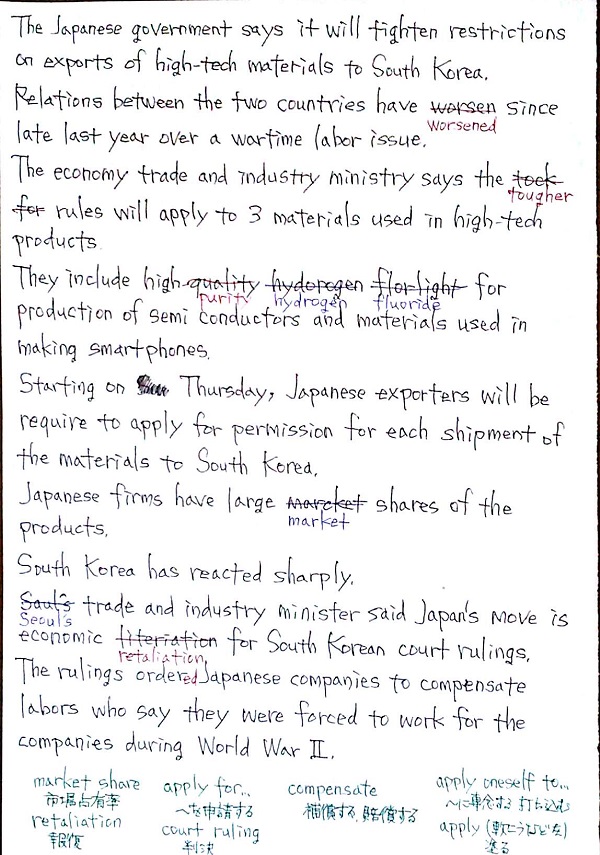 The Japanese government says it will tighten restrictions
on exports of high-tech materials to South Korea.
Relations between the two countries have worsen since
worsened
late last year over a wartime labor issue.
The economy trade and industry ministry says the tock
tougher
for rules will apply to 3 materials used in high-tech
products.
They include high-quality hydorogen flor light for
purity hydrogen fluoride
production of semi conductors and materials used in
making smartphones.
Starting on Thursday, Japanese exporters will be
require to apply for permission for each shipment of
the materials to South Korea.
Japanese firms have large marcket shares of the
market
products.
South Korea has reacted sharply.
Saul's trade and industry minister said Japan's move is
Seoul's
economic literiation for South Korean court rulings.
retaliation
The rulings ordered Japanese companies to compensate
labors who say they were forced to work for the
companies during World War II.
market share
市場占有率
retaliation
報復
apply for...
〜を申請する
court ruling
判決
compensate
補償する, 賠償する
apply oneself to...
〜に専念する 打ち込む
apply (軟こうなどを)
塗る